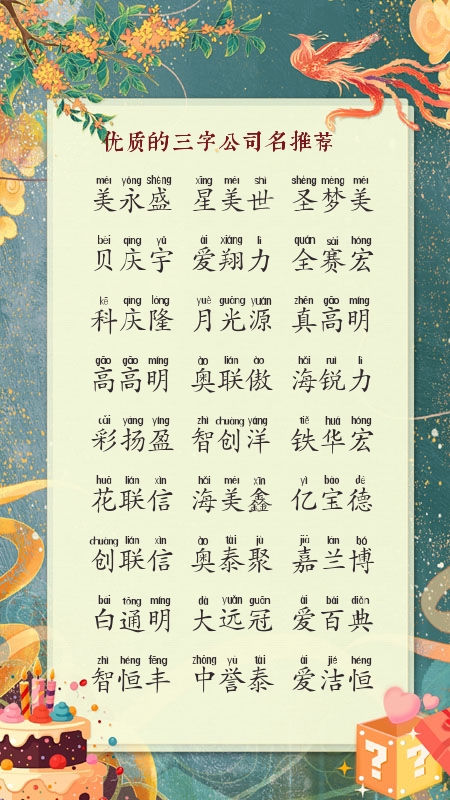 优质的三字公司名推荐
měi yóng shéng xīng měi shì shèng mèng měi
美永盛 星美世 圣梦美
bèi qìng yǔ ài xiáng lì quán sài hóng
贝庆宇 爱翔力 全赛宏
kē qìng lóng yuè guāng yuán zhēn gāo míng
科庆隆 月光源 真高明
gāo gāo míng ào lián ào hǎi ruì lì
高高明 奥联傲 海锐力
cǎi yáng yíng zhì chuàng yáng tiě huá hóng
彩扬盈 智创洋 铁华宏
huā lián xìn hǎi měi xīn yì bǎo dé
花联信 海美鑫 亿宝德
chuàng lián xìn ào tài jù jiā lán bó
创联信 奥泰聚 嘉兰博
bái tōng míng dà yuǎn guān ài bǎi diǎn
白通明 大远冠 爱百典
zhì héng fēng zhōng yù tài ài jié héng
智恒丰 中誉泰 爱洁恒
? ?